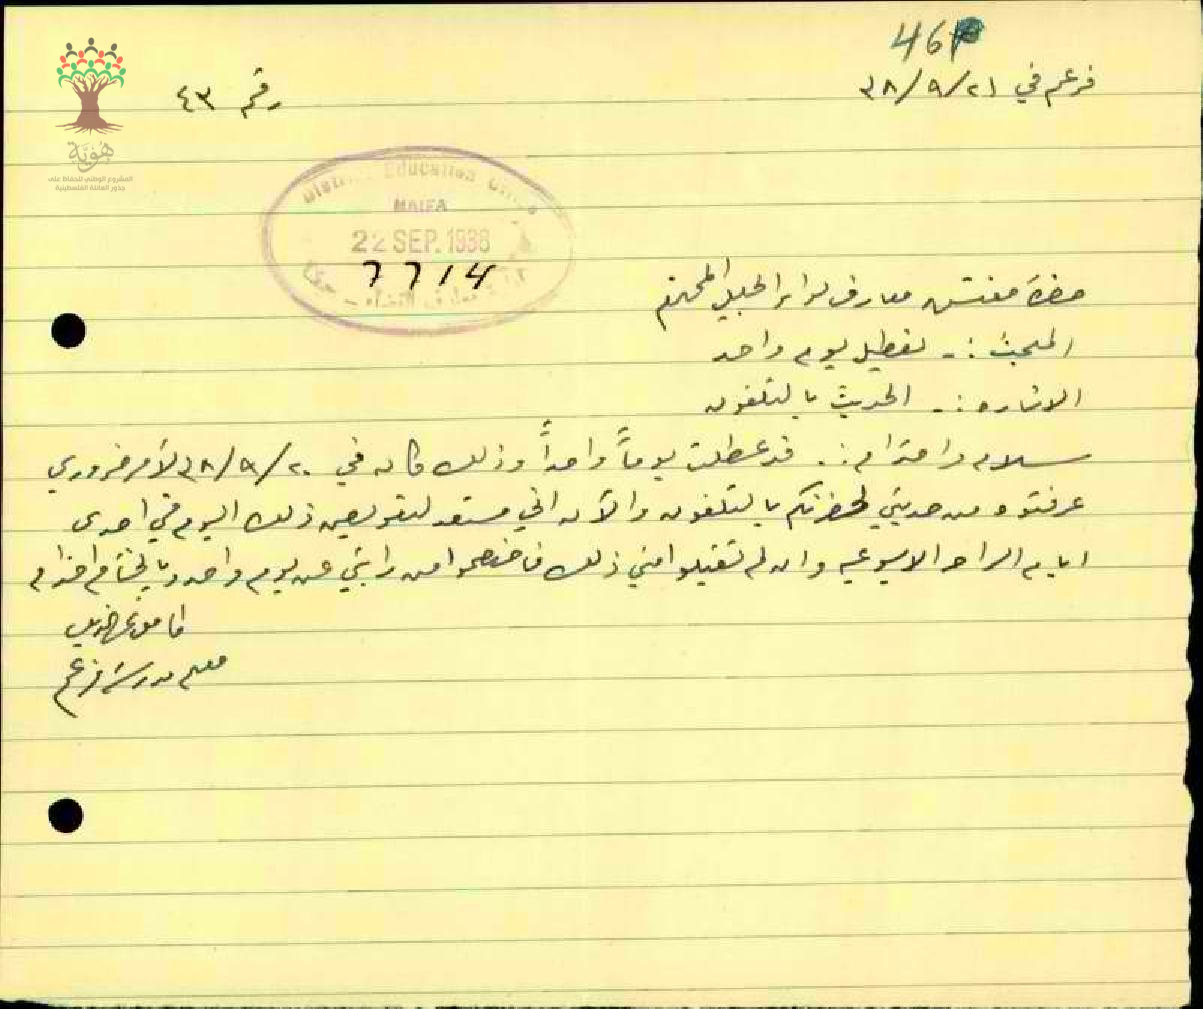 46
فرعم في ٢١/٩/٣٨
رقم ٤٣
هُوِيَّة
المشروع الوطني للحفاظ على
جذور العائلة الفلسطينية
District Education Office
HAIFA
22 SEP. 1938
7714
معارف اللواء - حيفا
حضرة مفتش معارف لواء الجليل المحترم
المبحث :- تعطيل يوم واحد
الاشاره :- الحديث بالتلفون
سلام واحترام :. قد عطلت يوماً واحداً وذلك كان في ٢٠/٩/٣٨ لأمر ضروري
عرفتوه من حديثي لحضرتكم بالتلفون والآن اني مستعد لتعويض ذلك اليوم في احدى
ايام الراحه الاسبوعيه وان لم تقبلوا مني ذلك فاخصموا من راتبي عن يوم واحد وبالختام احترام
معلم مدرسة فرعم